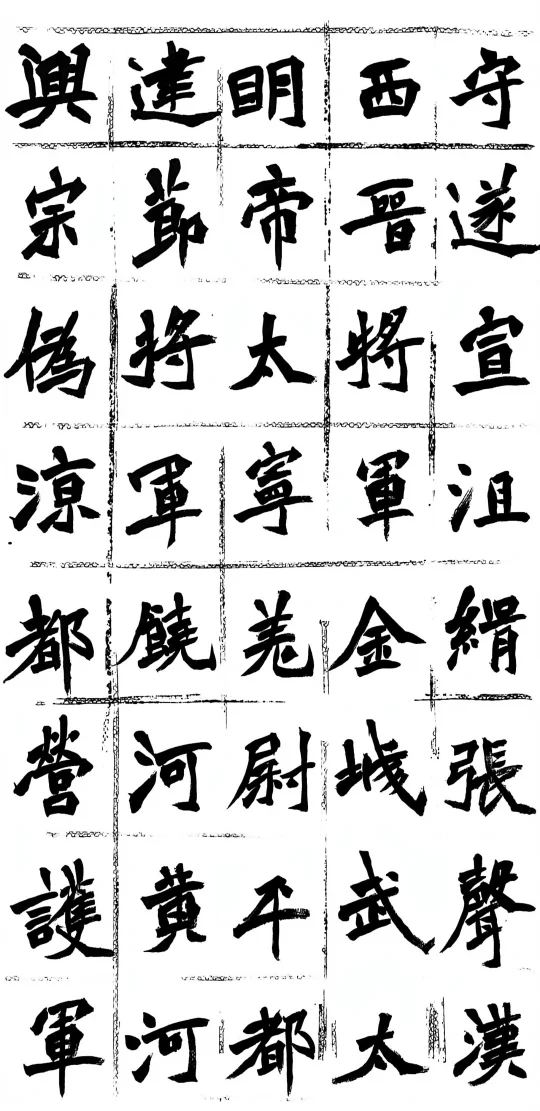 守遂宣沮緝張聲漢
西晉將軍金城武太
明帝太寧羌尉平都
建節將軍饒河黃河
興宗偽涼都營護軍